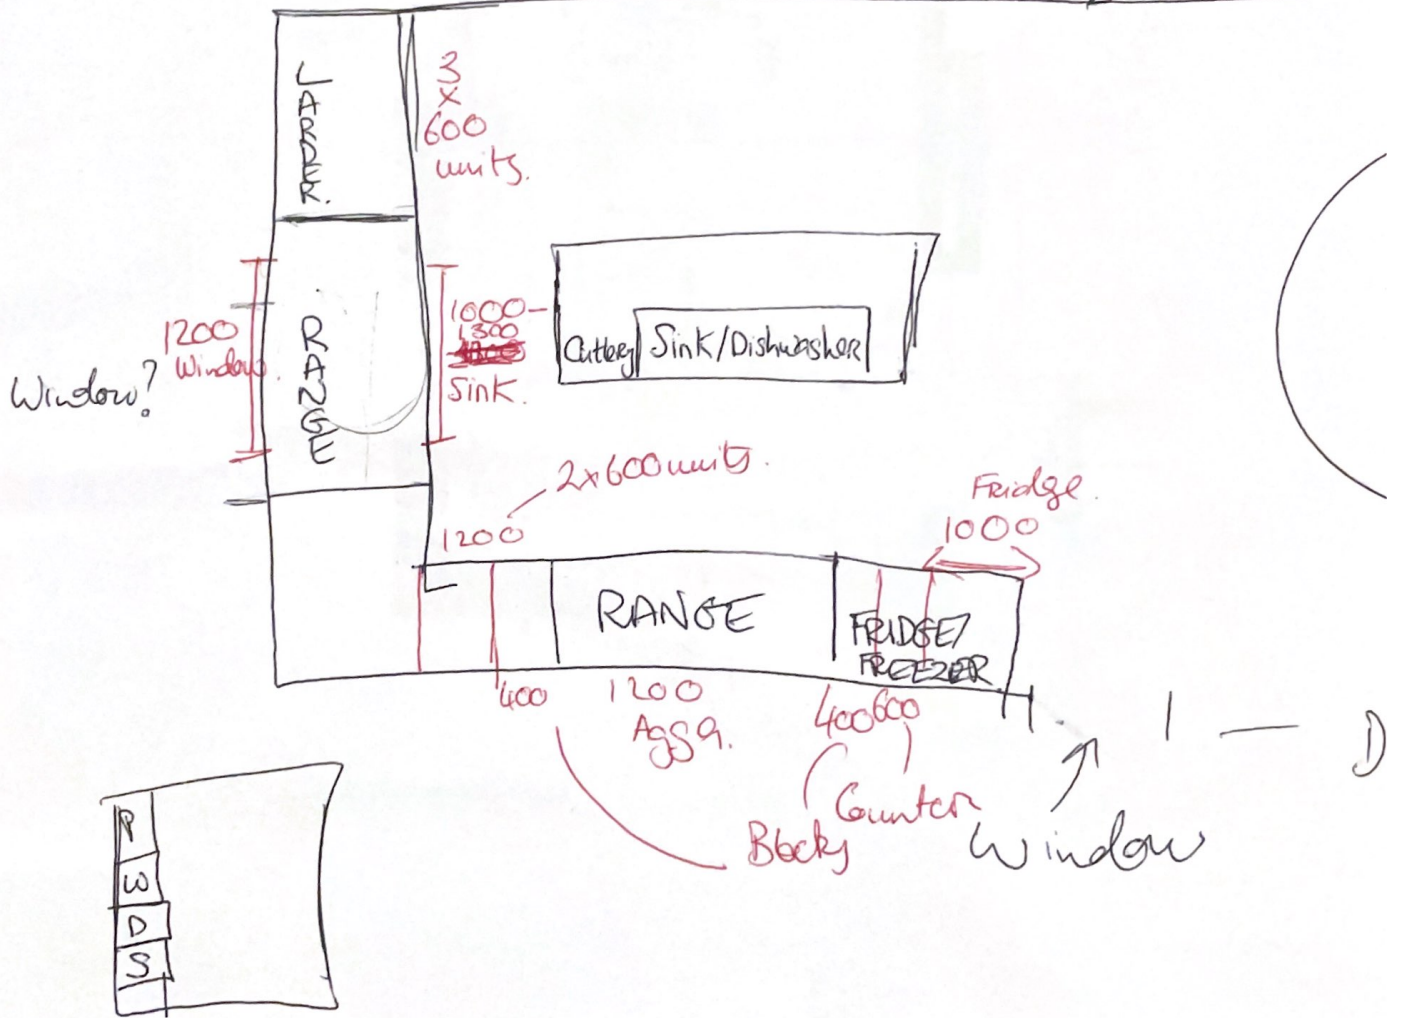 LARDER.
3
x
600
units.
1200
Window.
Window?
RANGE
1000
1300
Sink.
Cuttlery
Sink/Dishwasher
2x600 units.
1200
Fridge.
1000
RANGE
FRIDGE/
FREEZER
400
1200
Agga.
400
600
Counter
Blocks
Window
D
P
W
D
S